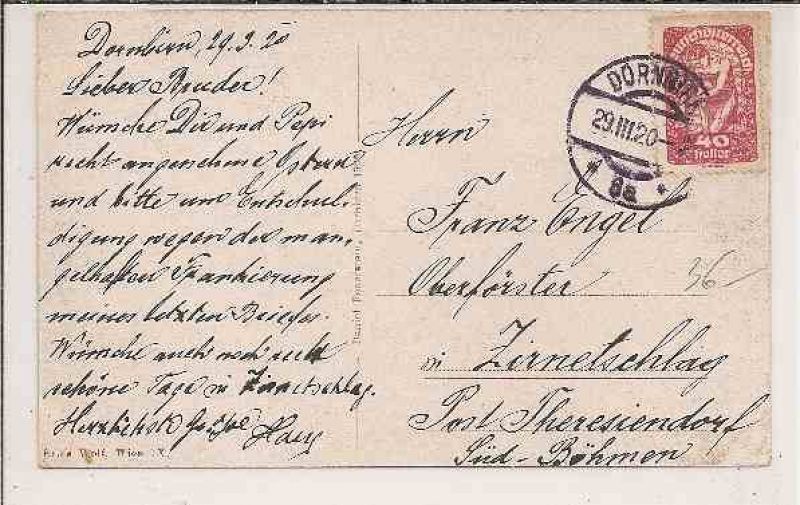 Dornbirn, 29.3.20
Lieber Bruder!
Wünsche Dir und Pepi
recht angenehme Ostern
und bitte um Entschul-
digung wegen der man-
gelhaften Frankierung
meines letzten Briefes.
Wünsche auch noch recht
schöne Tage in Zirnetschlag.
Herzlichste Grüße
Bruno Wolf, Wien IX.
DORNBIRN
29.III.20
* 8a *
40
Heller
Herrn
Franz Engel
Oberförster
in Zirnetschlag
Post Theresiendorf
Süd-Böhmen
36-